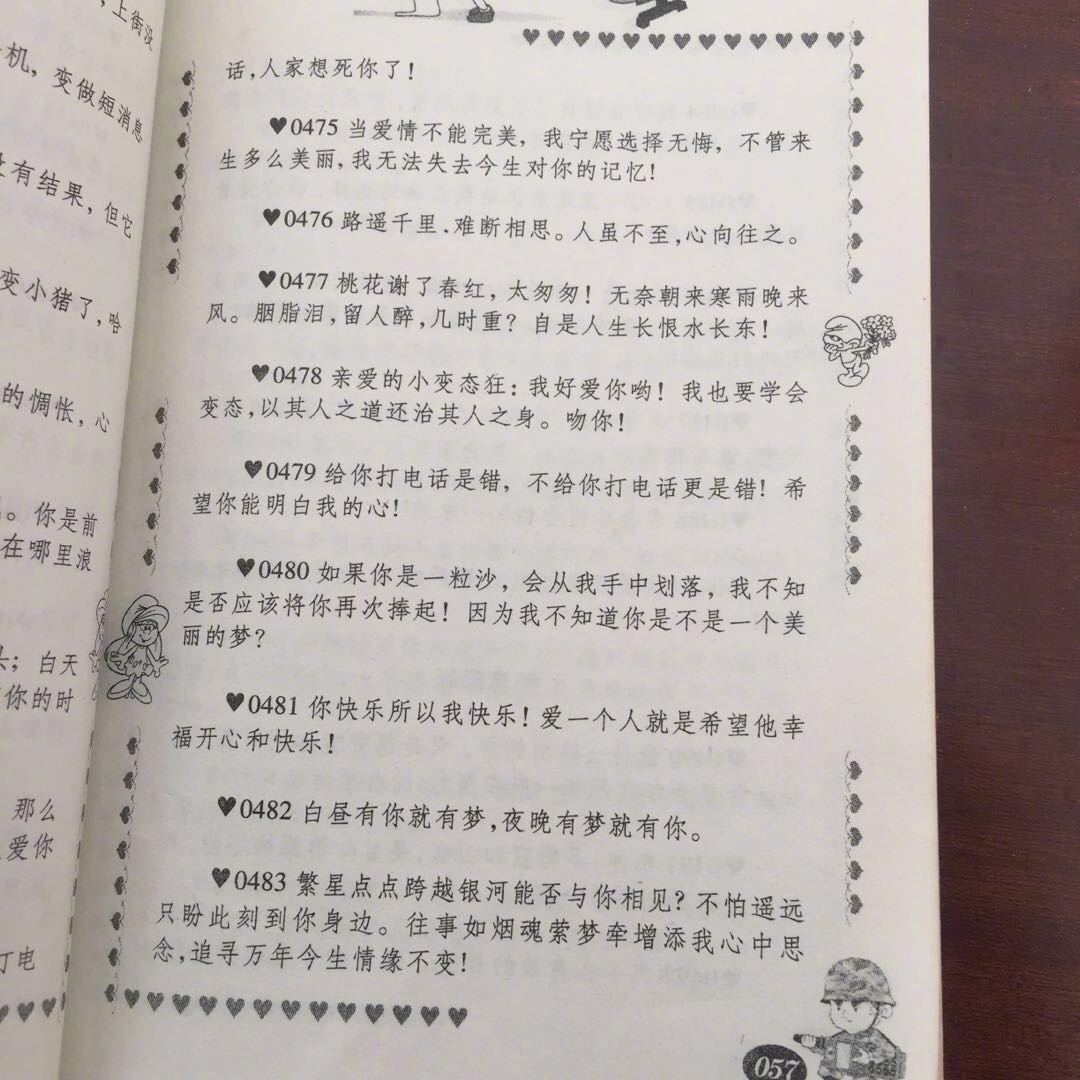 上街没
机，变做短消息
没有结果，但它
变小猪了，哈
的惆怅，心
。你是前
在哪里浪
头；白天
你的时
那么
爱你
打电
话，人家想死你了！
♥0475 当爱情不能完美，我宁愿选择无悔，不管来
生多么美丽，我无法失去今生对你的记忆！
♥0476 路遥千里．难断相思。人虽不至，心向往之。
♥0477 桃花谢了春红，太匆匆！无奈朝来寒雨晚来
风。胭脂泪，留人醉，几时重？自是人生长恨水长东！
♥0478 亲爱的小变态狂：我好爱你哟！我也要学会
变态，以其人之道还治其人之身。吻你！
♥0479 给你打电话是错，不给你打电话更是错！希
望你能明白我的心！
♥0480 如果你是一粒沙，会从我手中划落，我不知
是否应该将你再次捧起！因为我不知道你是不是一个美
丽的梦？
♥0481 你快乐所以我快乐！爱一个人就是希望他幸
福开心和快乐！
♥0482 白昼有你就有梦，夜晚有梦就有你。
♥0483 繁星点点跨越银河能否与你相见？不怕遥远
只盼此刻到你身边。往事如烟魂萦梦牵增添我心中思
念，追寻万年今生情缘不变！
057